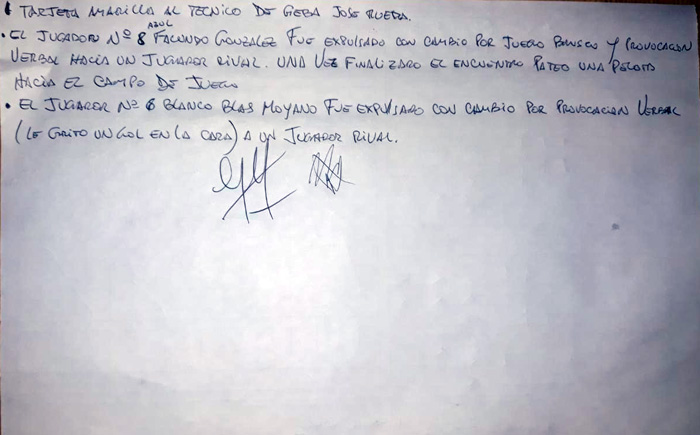 TARJETA AMARILLA AL TECNICO DE GEBA JOSE RUEDA.
AZUL
• EL JUGADOR Nº 8 FACUNDO GONZALEZ FUE EXPULSADO CON CAMBIO POR JUEGO BRUSCO Y PROVOCACION
VERBAL HACIA UN JUGADOR RIVAL. UNA VEZ FINALIZADO EL ENCUENTRO PATEO UNA PELOTA
HACIA EL CAMPO DE JUEGO
• EL JUGADOR Nº 6 BLANCO BLAS MOYANO FUE EXPULSADO CON CAMBIO POR PROVOCACION VERBAL
(LE GRITO UN GOL EN LA CARA) A UN JUGADOR RIVAL.